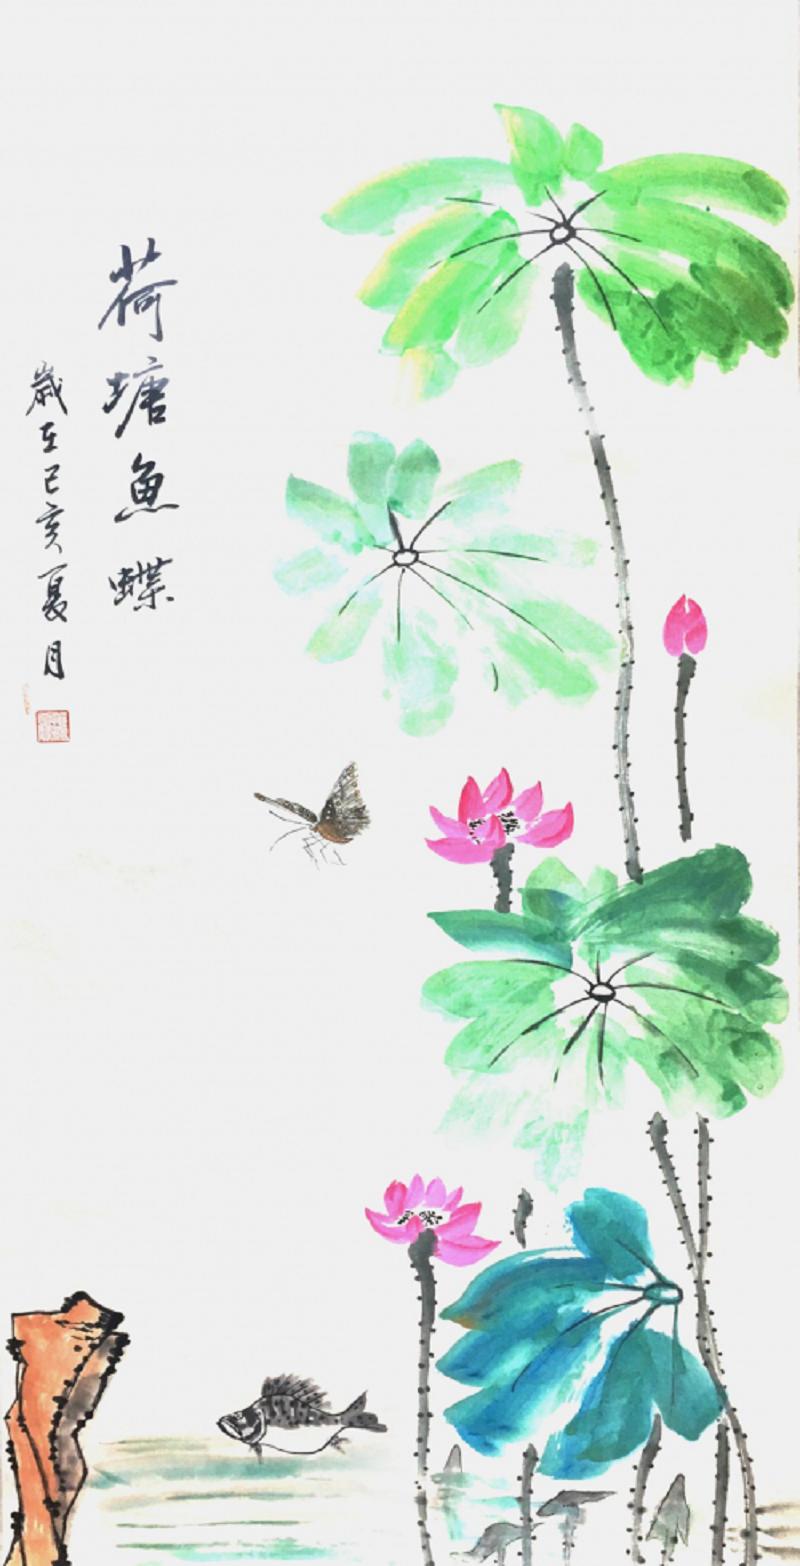 荷塘魚蝶
歲在己亥夏月